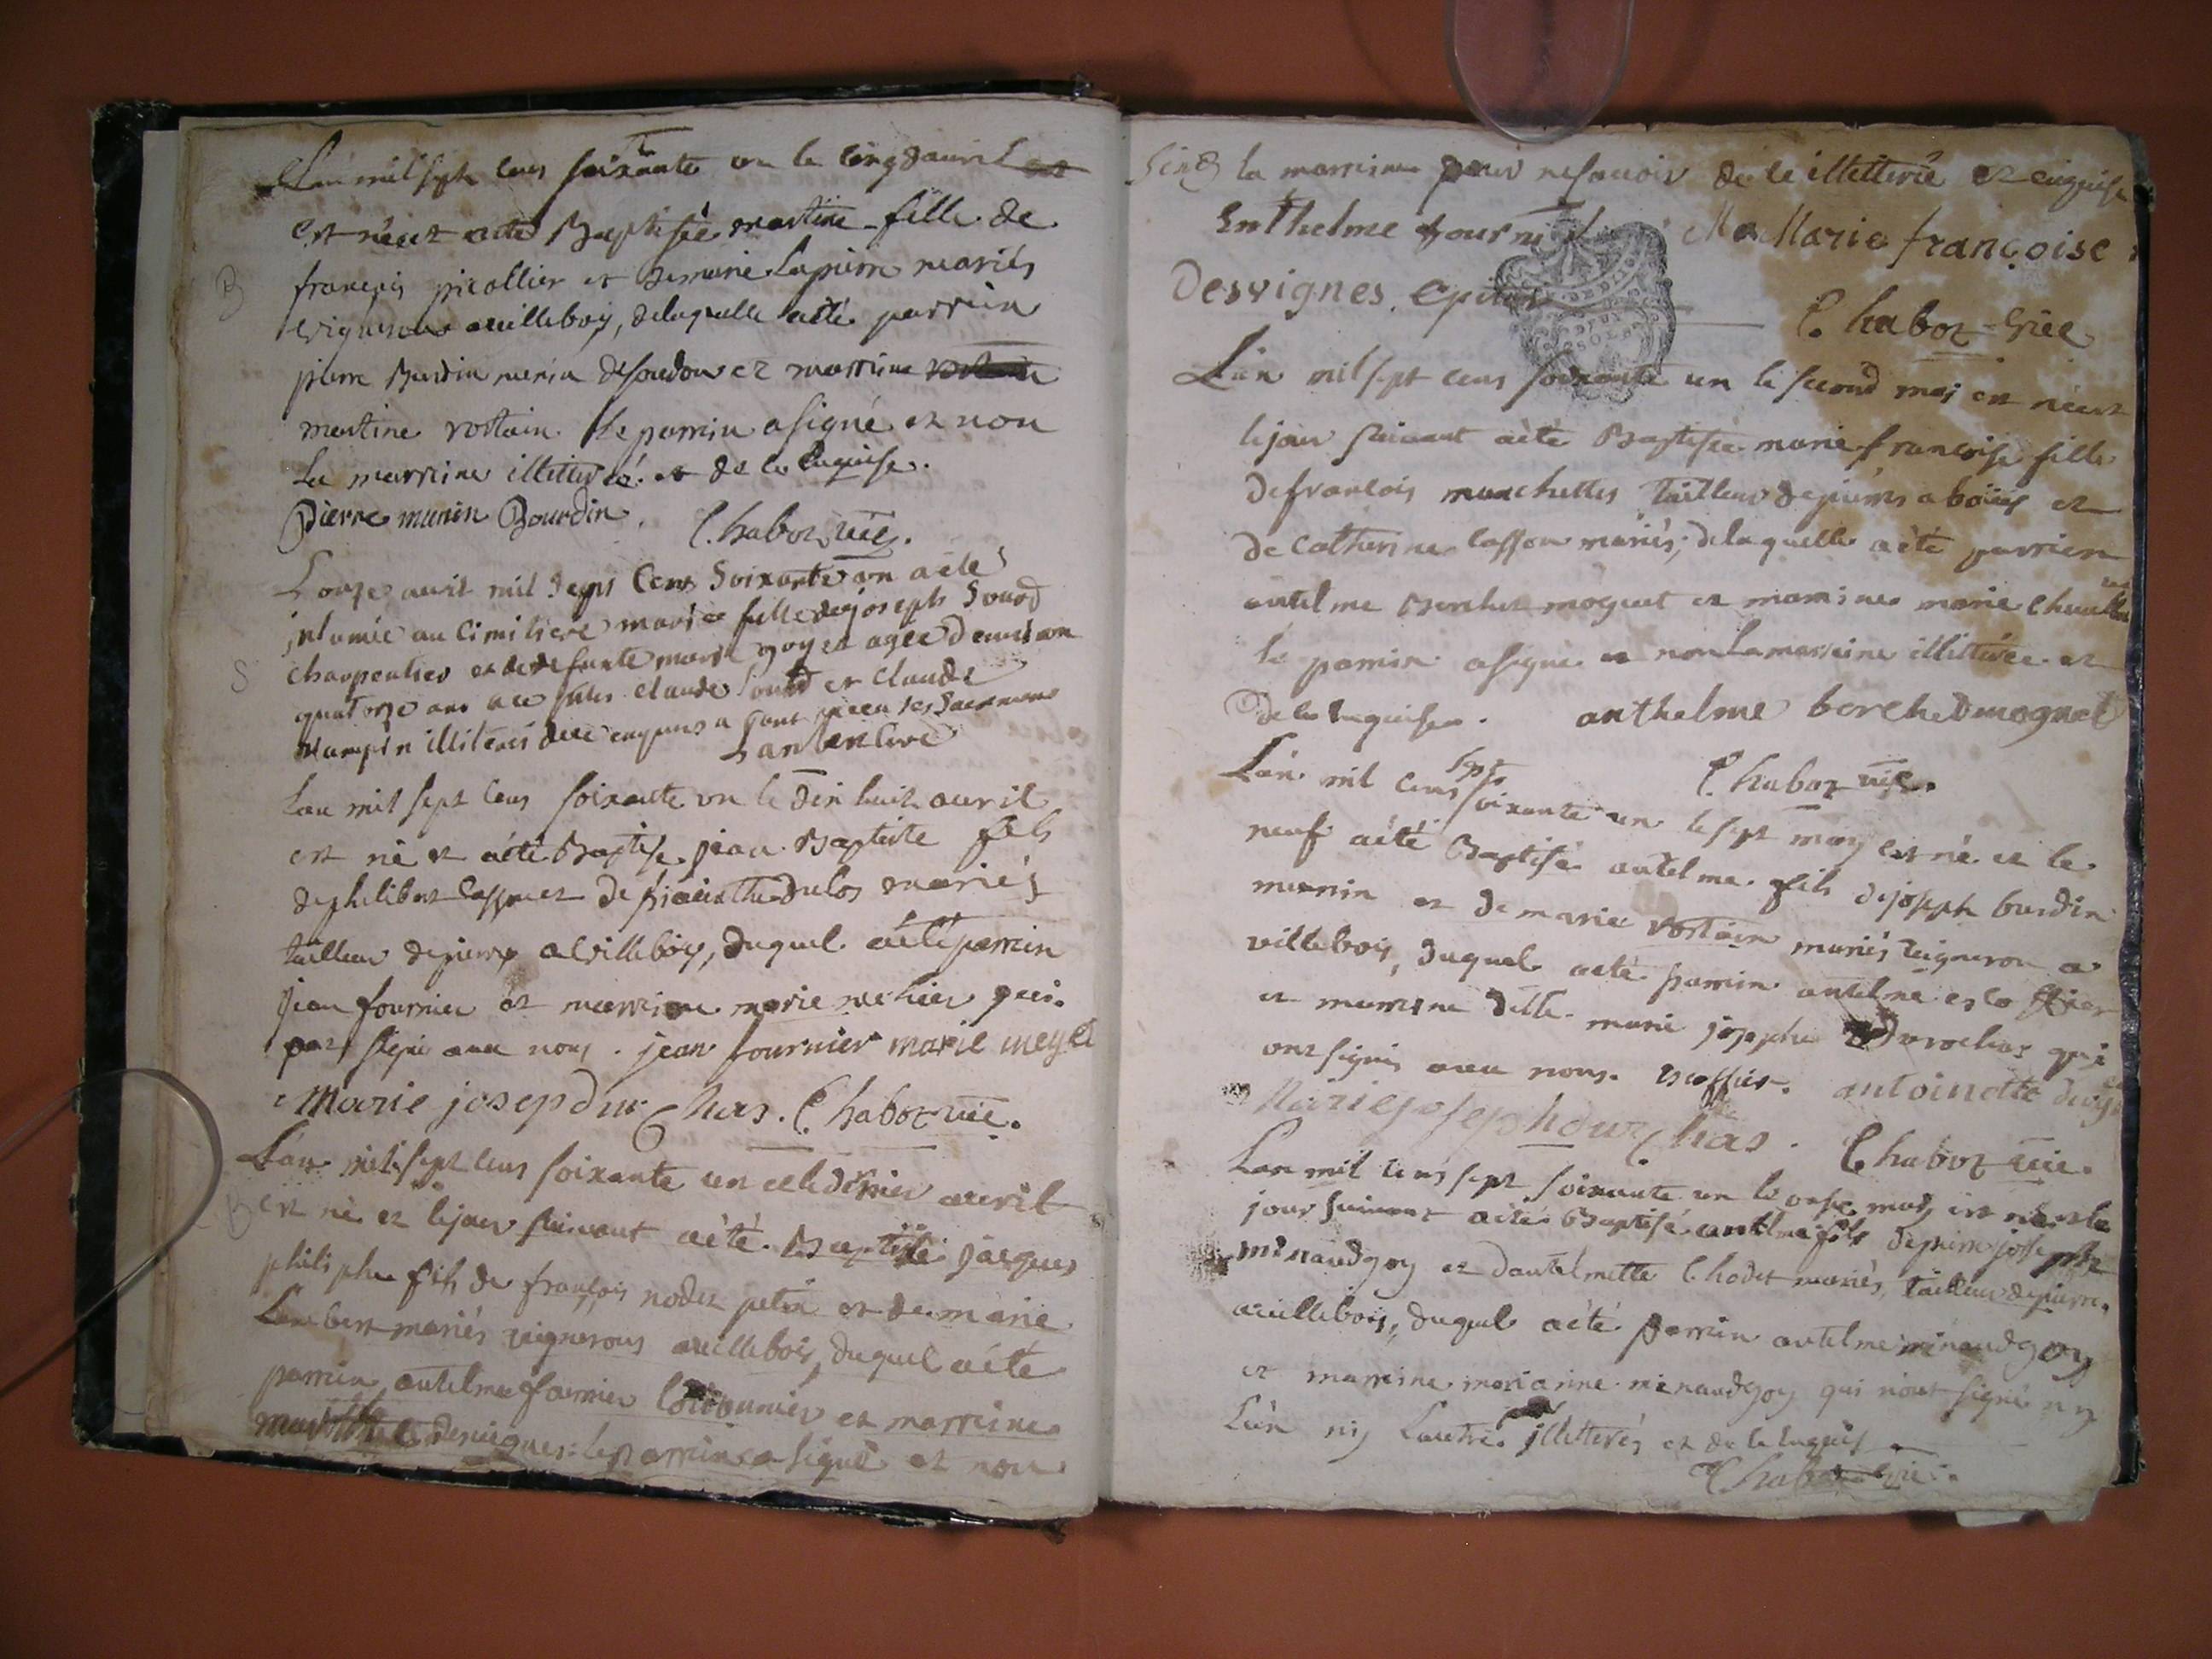 Lan mil sept cens soixante un le cinq davril
est néé et a été Baptiséé martine fille de
B
françois picollier et de marie Lapierre mariés
vignerons a villeboy, de laquelle a été parrin
pierre Burdin munin de soudon et marrine
martine rostain le parrin a signé et non
La marrine illitteréé de ce enquise.
Pierre munin Bourdin. Chaboz vic.
L onze avril mil sept Cent Soixante un a été
inhumée au Cimitiere marie fille de joseph Sourd
S
charpentier et de defunte marie goy et agée denviron
quatorze ans ace faits claude Sourd et claude
illiterés de ce enquis a Sont receu ses Sacrements
Lan mil sept cens soixante un le dix huit avril
est né et a été Baptisé jean Baptiste fils
de philibert et de mariés
tailleur de pierre a villeboy, duquel a été parrin
jean fournier et marrine marie qui
ont signé avec nous. jean fournier marie
Marie josep dur Chas. Chaboz vic.
Lan mil sept cens soixante un et le dernier avril
B
est né et le jour suivant a été Baptisé jacques
philiphe fils de françois nodet petin et de marie
Lambert mariés vignerons a villebois, duquel a été
parrin antelme fournier et marrine
desvignes le parrin a signé et non
la marrine pour ne savoir de ce illitteréé et enquise
Enthelme fourni Marie françoise
Desvignes. Chaboz vice
Lan mil sept cens soixante un le second mai est néé et
le jour suivant a été Baptiséé marie françoise fille
de françois manchettes tailleur de pierres a boüis et
de Catherine Casson mariés, de laquelle a été parrien
antelme Berchet mognet et marrine marie
le parrin a signé et non La marrine illittérée et
de ce enquise. anthelme berchedmognet
Chaboz vic.
Lan mil cens sept soixante un le sept may est né et le
neuf a été Baptisé antelme fils de joseph burdin
munin et de marie rostain mariés vigneron a
villebois, duquel a été parrin antelme escoffier
et marrine dlle. marie josephe Durochas qui
ont signés avec nous. Escoffier. antoinette
Marie joseph dur Chas. Chaboz vic.
Lan mil cens sept soixante un le onze may est né et le
jour suivant a été Baptisé antelme fils de pierre joseph
minaudgoy et dantelmette Chodet mariés, tailleur de pierre
a villebois, duquel a été parrin antelme minaudgoy
et marrine marianne minaudgoy qui n'ont signé ny
Lun ny Lautre illitterés et de ce enquis
Chaboz vic.